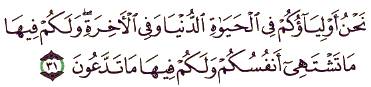 نَحْنُ أَوْلِيَآؤُكُمْ فِى الْحَيَوٰةِ الدُّنْيَا وَفِى الْأَخِرَةِ ۖ وَلَكُمْ فِيهَا
مَا تَشْتَهِىٓ أَنفُسُكُمْ وَلَكُمْ فِيهَا مَا تَدَّعُونَ ٣١